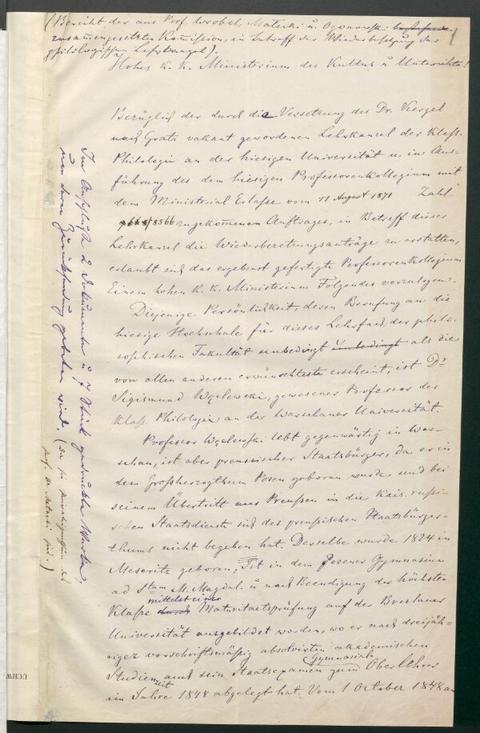 (Bericht der aus Prof. Wrobel, Malecki u. Ogonowski
zusammengesetzten Komission, in Betreff der Wiederbesetzung der
philologischen Lehrkanzel).
Hohes k. k. Ministerium des Kultus u Unterrichts!
Bezüglich der durch die Versetzung des Dr. Kergel
nach Gratz vakant gewordenen Lehrkanzel der klass.
Philologie an der hiesigen Universität u. in Aus-
führung des dem hiesigen Professorenkollegium mit
dem Ministerial Erlasse vom 11 August 1871 Zahl
zugekommenen Auftrages, in Betreff dieser
Lehrkanzel die Wiederbesetzungsanträge zu erstatten,
erlaubt sich das ergebenst gefertigte Professorenkollegium
Einem hohen k. k. Ministerium Folgendes vorzulegen.
Diejenige Persönlichkeit, deren Berufung an die
hiesige Hochschule für dieses Lehrfach der philo-
sophischen Fakultät unbedingt unbedingt als die
von allen anderen erwünschteste erscheint, ist Dr
Sigismund Węclewski, gewesener Professor der
klass. Philologie an der Warschauer Universität.
Professor Węclewski lebt gegenwärtig in War-
schau, ist aber preussischer Staatsbürger, da er in
dem Großherzogthum Posen geboren wurde und bei
seinem Übertritt aus Preußen in die kais. russi-
schen Staatsdienst sich des preußischen Staatsbürger-
thums nicht begeben hat. Derselbe wurde 1824 in
Meseritz geboren, ist in dem Posener Gymnasium
ad Stam M. Magdal. u nach Beendigung der höchsten
Klasse mittelst einer Maturitätsprüfung auf der Breslauer
Universität ausgebildet worden, wo er nach dreijäh-
riger vorschriftsmäßig absolvirten akademischen
Studienzeit auch sein Staatsexamen zum Gymnasial Oberlehrer
im Jahre 1848 abgelegt hat. Vom 1 October 1848 an
Im Anschluße 2 Dokumente u 7 Stück gedruckte Werke,
um deren Zurücksendung gebeten wird.